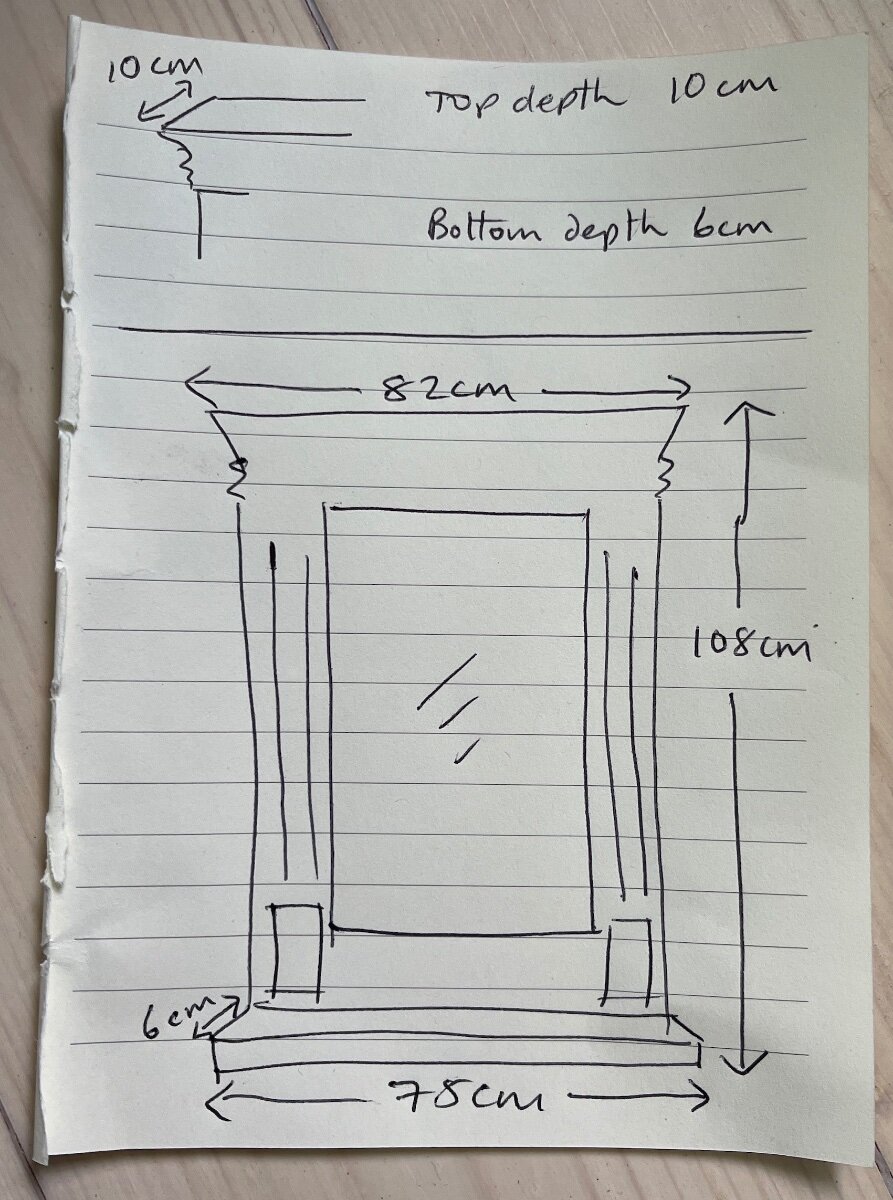 10cm
Top depth 10cm
Bottom depth 6cm
82cm
108cm
6cm
78cm